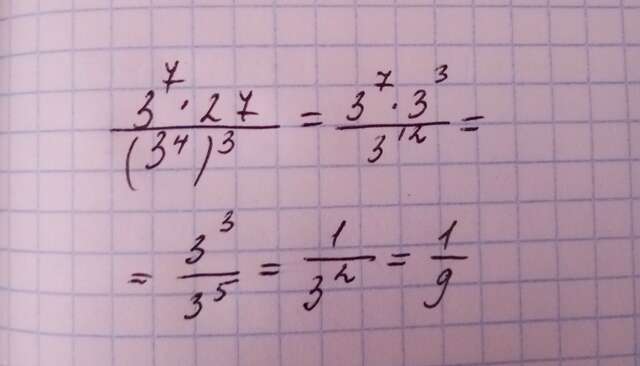 3⁷ · 27 / (3⁴)³ = 3⁷ · 3³ / 3¹² =
= 3³ / 3⁵ = 1 / 3² = 1 / 9